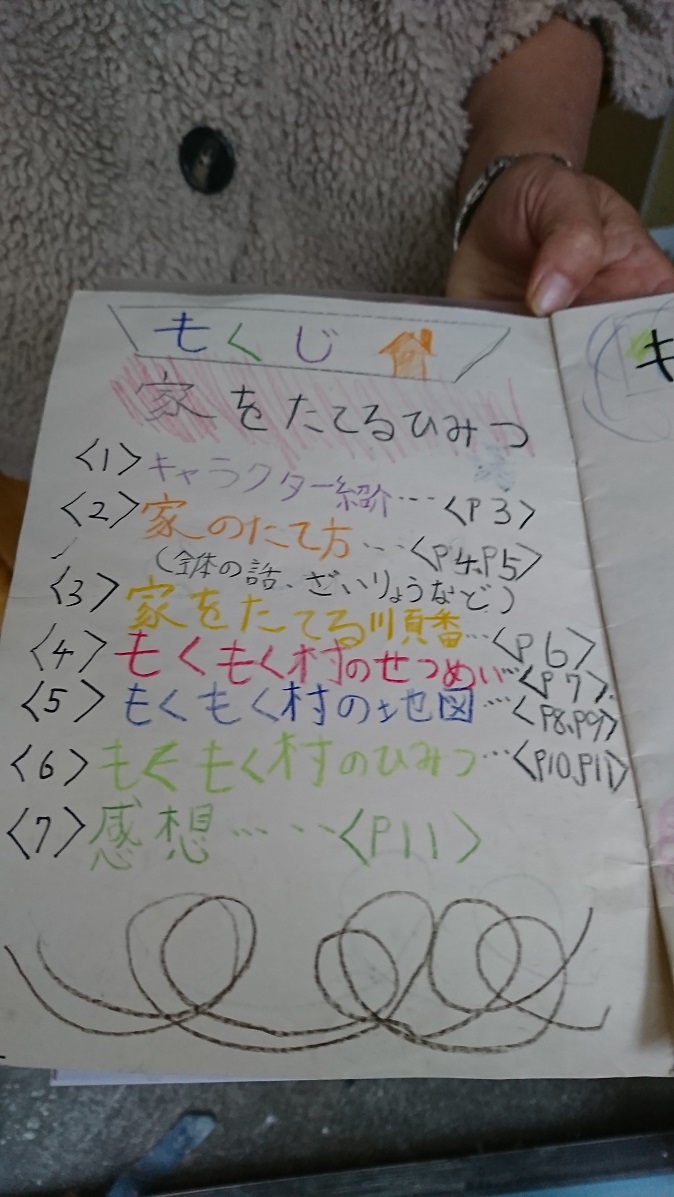 もくじ
家をたてるひみつ
<1>キャラクター紹介…<P3>
<2>家のたて方…<P4、P5>
(全体の話、ざいりょうなど)
<3>家をたてる順番…<P6>
<4>もくもく村のせつめい…<P7>
<5>もくもく村の地図…<P8、P9>
<6>もくもく村のひみつ…<P10、P11>
<7>感想……<P11>